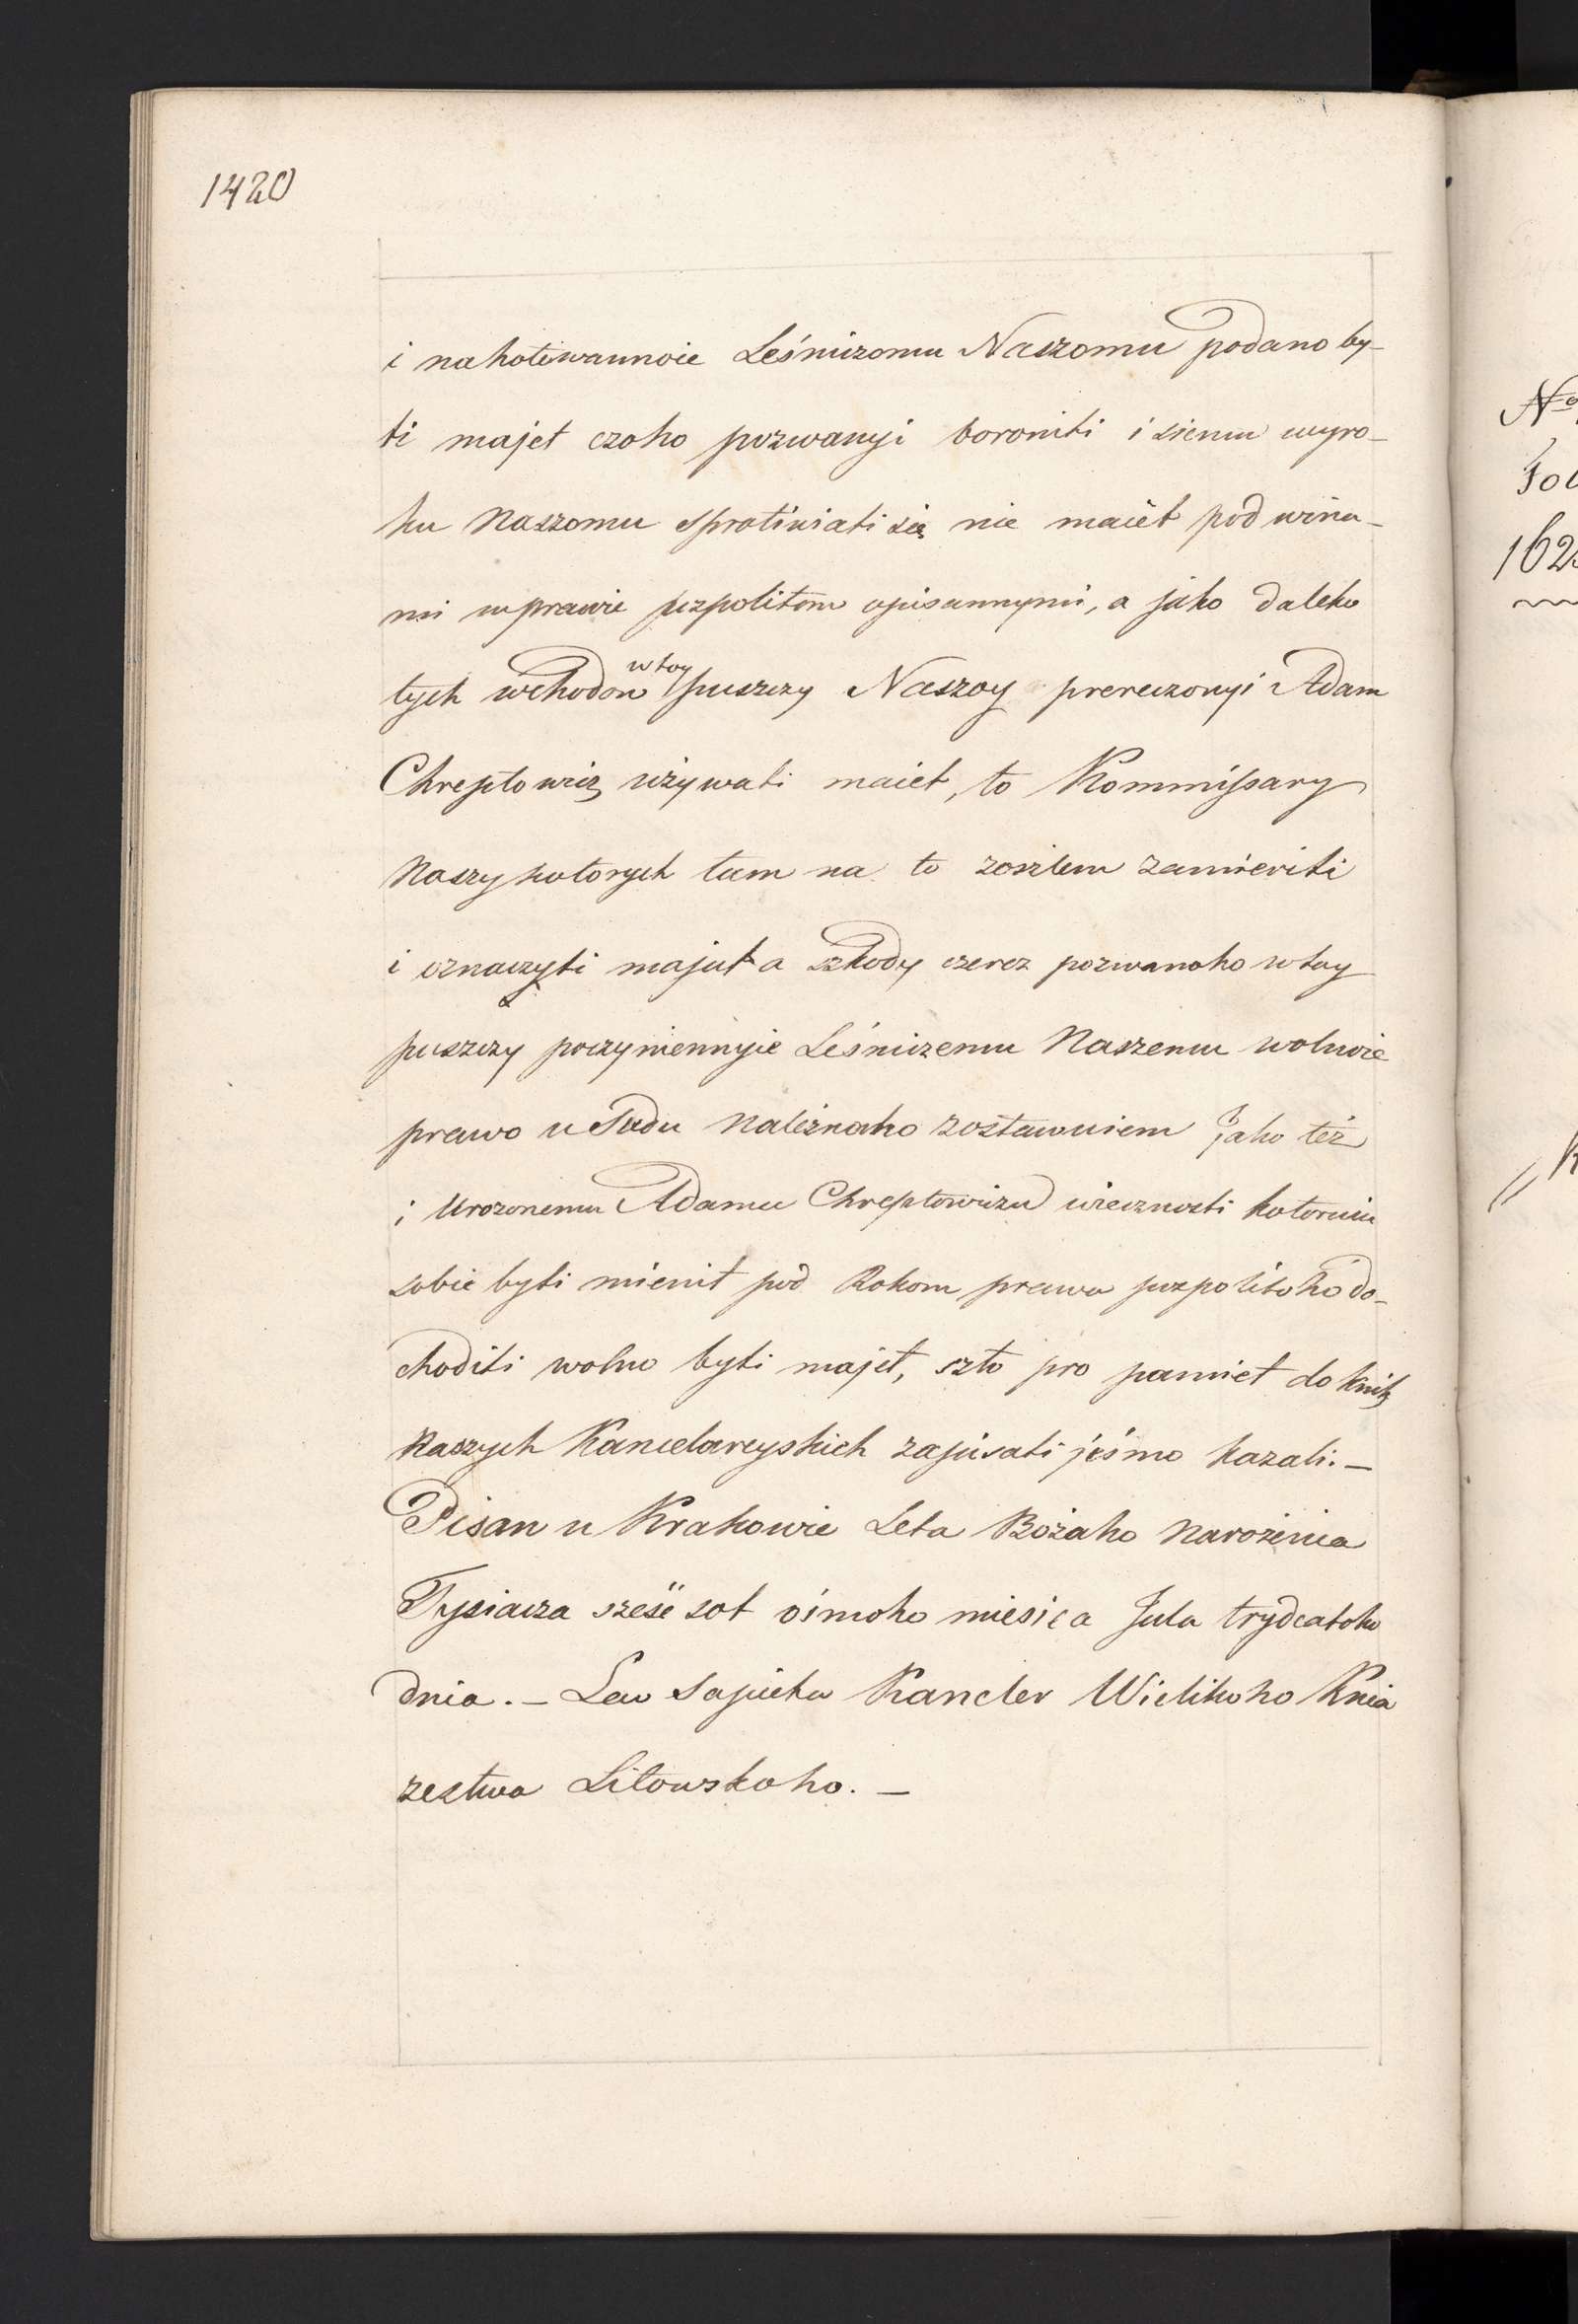 1420
i nahotowannoie Leśniczomu Naszomu podano by-
ti majet czoho pozwanyi boroniti i siemu wyro-
ku Naszomu sprotiwiati się nie maiet pod wina-
mi w prawie pospolitom opisannymi, a jako daleko
tych wchodow w toy puszczy Naszoy prereczonyi Adam
Chreptowicz używati maiet, to Kommissary
Naszy kotorych tam na to zoszlem zamieriti
i oznaczyti majut a szkody czerez pozwanoho w toy
puszczy poczyniennyie Leśniczemu Naszemu wolnoie
prawo u Sudu Należnaho zostawuiem Jako też
i Urozonemu Adamu Chreptowiczu wieczności kotoruiu
sobie byti mienit pod Rokom prawa pospolitoho do-
choditi wolno byti majet, szto pro pamiet do knih
Naszych Kancelaryskich zapisati jeśmo kazali. —
Pisan u Krakowie Leta Bożaho Narożenia
Tysiacza sześć sot ośmoho miesięca Jula trydcatoho
dnia. — Lew Sapieha Kancler Wielikoho Knia
zestwa Litowskoho. —
No
Fol
162